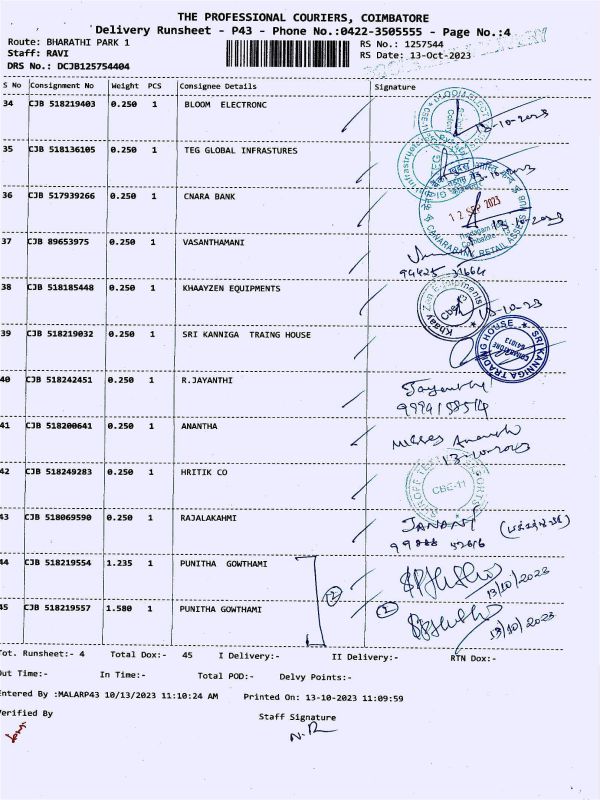 THE PROFESSIONAL COURIERS, COIMBATORE
Delivery Runsheet - P43 - Phone No.:0422-3505555 - Page No.:4
Route: BHARATHI PARK 1 RS No.: 1257544
Staff: RAVI RS Date: 13-Oct-2023
DRS No.: DCJB125754404
S No Consignment No Weight PCS Consignee Details Signature
34 CJB 518219403 0.250 1 BLOOM ELECTRONC
13-10-2023
35 CJB 518136105 0.250 1 TEG GLOBAL INFRASTURES
36 CJB 517939266 0.250 1 CNARA BANK
12 SEP 2023
CANARA BANK RETAIL ASSET
37 CJB 89653975 0.250 1 VASANTHAMANI
38 CJB 518185448 0.250 1 KHAAYZEN EQUIPMENTS
39 CJB 518219032 0.250 1 SRI KANNIGA TRAING HOUSE
SRI KANNIGA TRADING HOUSE
COIMBATORE
641013
40 CJB 518242451 0.250 1 R.JAYANTHI
Jayanthi
41 CJB 518200641 0.250 1 ANANTHA
13-10-2023
42 CJB 518249283 0.250 1 HRITIK CO
CBE-11
43 CJB 518069590 0.250 1 RAJALAKAHMI
44 CJB 518219554 1.235 1 PUNITHA GOWTHAMI
13/10/2023
45 CJB 518219557 1.580 1 PUNITHA GOWTHAMI
2
13/10/2023
Tot. Runsheet:- 4 Total Dox:- 45 I Delivery:- II Delivery:- RTN Dox:-
Out Time:- In Time:- Total POD:- Delvy Points:-
Entered By :MALARP43 10/13/2023 11:10:24 AM Printed On: 13-10-2023 11:09:59
Verified By Staff Signature